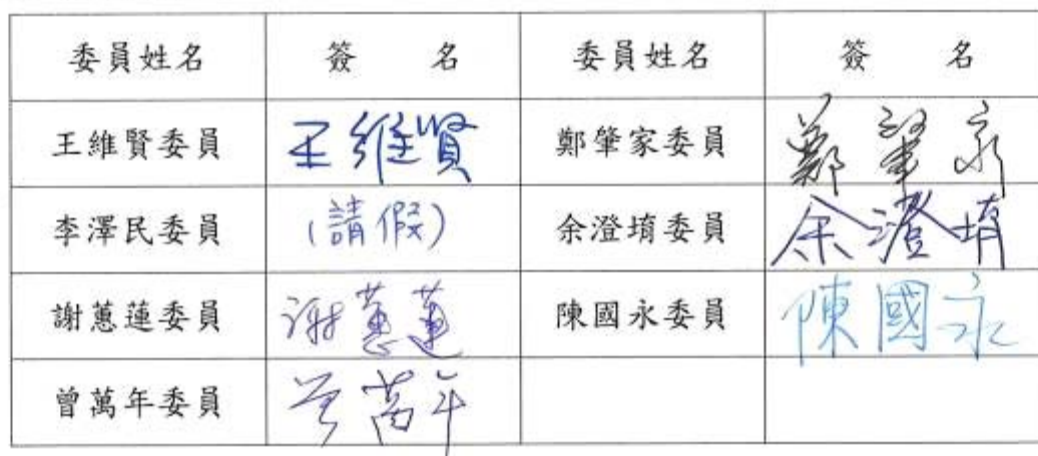 委員姓名 簽 名 委員姓名 簽 名
王維賢委員 王維賢 鄭肇家委員 鄭肇家
李澤民委員 (請假) 余澄堉委員 余澄堉
謝蕙蓮委員 謝蕙蓮 陳國永委員 陳國永
曾萬年委員 曾萬年